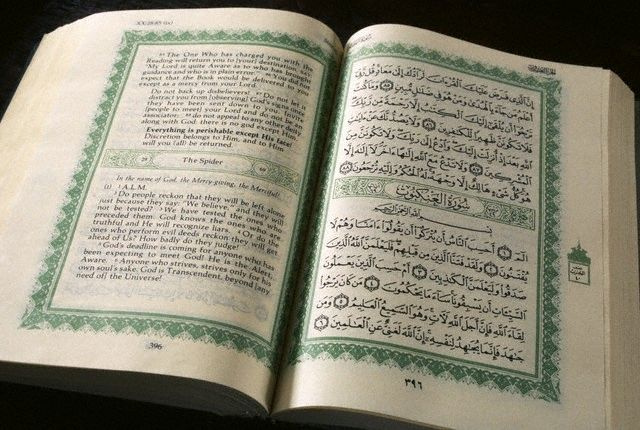 XX:28:85 (ix)
85 The One Who has charged you with the
Reading will return you to [your] destiny. SAY:
"My Lord is quite Aware as to who has brought
guidance and who is in plain error." 86 You did not
expect that the Book would be delivered to you
except as a mercy from your Lord.
Do not back up disbelievers! 87 Do not let it
distract you from [observing] God's signs once
they have been sent down to you. Invite
[people to meet] your Lord and do not be an
associator; 88 do not appeal to any other deity
along with God: there is no god except Him.
Everything is perishable except His face!
Discretion belongs to Him, and to Him
will you (all) be returned.
29 The Spider 60
In the name of God, the Mercy-giving, the Merciful!
(I) 1 A.L.M.
2 Do people reckon that they will be left alone
just because they say: "We believe," and they will
not be tested? 3 We have tested the ones who
preceded them. God knows the ones who are
truthful and He will recognize liars. 4 Or do the
ones who perform evil deeds reckon they will get
ahead of Us? How badly do they judge!
5 God's deadline is coming for anyone who has
been expecting to meet God! He is the Alert,
Aware. 6 Anyone who strives, strives only for his
own soul's sake. God is Transcendent, beyond [any
need of] the Universe!
396
إِنَّ الَّذِي فَرَضَ عَلَيْكَ الْقُرْآنَ لَرَادُّكَ إِلَىٰ مَعَادٍ قُل رَّبِّي
أَعْلَمُ مَن جَاءَ بِالْهُدَىٰ وَمَنْ هُوَ فِي ضَلَالٍ مُّبِينٍ ٨٥ وَمَا كُنتَ
تَرْجُو أَن يُلْقَىٰ إِلَيْكَ الْكِتَابُ إِلَّا رَحْمَةً مِّن رَّبِّكَ
فَلَا تَكُونَنَّ ظَهِيرًا لِّلْكَافِرِينَ ٨٦ وَلَا يَصُدُّنَّكَ عَنْ آيَاتِ
اللَّهِ بَعْدَ إِذْ أُنزِلَتْ إِلَيْكَ وَادْعُ إِلَىٰ رَبِّكَ وَلَا تَكُونَنَّ مِنَ
الْمُشْرِكِينَ ٨٧ وَلَا تَدْعُ مَعَ اللَّهِ إِلَٰهًا آخَرَ لَا إِلَٰهَ إِلَّا
هُوَ كُلُّ شَيْءٍ هَالِكٌ إِلَّا وَجْهَهُ لَهُ الْحُكْمُ وَإِلَيْهِ تُرْجَعُونَ ٨٨
سُورَةُ الْعَنْكَبُوتِ
بِسْمِ اللَّهِ الرَّحْمَٰنِ الرَّحِيمِ
الم ١ أَحَسِبَ النَّاسُ أَن يُتْرَكُوا أَن يَقُولُوا آمَنَّا وَهُمْ لَا
يُفْتَنُونَ ٢ وَلَقَدْ فَتَنَّا الَّذِينَ مِن قَبْلِهِمْ فَلَيَعْلَمَنَّ اللَّهُ الَّذِينَ
صَدَقُوا وَلَيَعْلَمَنَّ الْكَاذِبِينَ ٣ أَمْ حَسِبَ الَّذِينَ يَعْمَلُونَ
السَّيِّئَاتِ أَن يَسْبِقُونَا سَاءَ مَا يَحْكُمُونَ ٤ مَن كَانَ يَرْجُوا
لِقَاءَ اللَّهِ فَإِنَّ أَجَلَ اللَّهِ لَآتٍ وَهُوَ السَّمِيعُ الْعَلِيمُ ٥ وَمَن
جَاهَدَ فَإِنَّمَا يُجَاهِدُ لِنَفْسِهِ إِنَّ اللَّهَ لَغَنِيٌّ عَنِ الْعَالَمِينَ ٦
٣٩٦